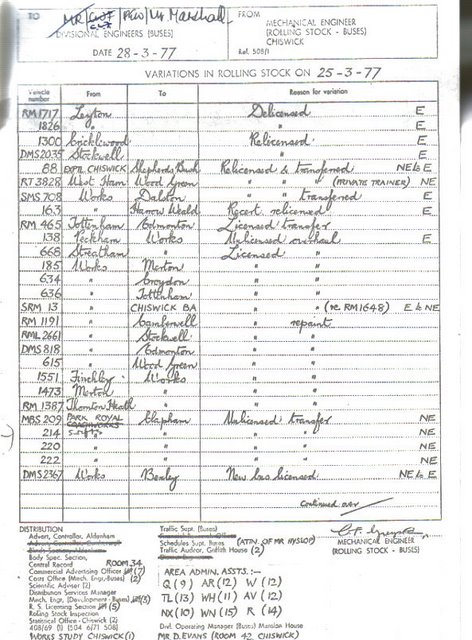 TO
MR Marshall
DIVISIONAL ENGINEERS (BUSES)
DATE 28-3-77
FROM
MECHANICAL ENGINEER
(ROLLING STOCK - BUSES)
CHISWICK
Ref. 508/1
VARIATIONS IN ROLLING STOCK ON 25-3-77
Vehicle number From To Reason for variation
RM 1717 Leyton Delicensed E
1826 " " E
1300 Cricklewood Relicensed E
DMS 2035 Stockwell " E
88 EXPTL CHISWICK Shepherds Bush Relicensed & transferred NE to E
RT 3828 West Ham Wood Green " " (PRIVATE TRAINER) NE
SMS 708 Works Dalston " transferred E
163 " Harrow Weald Recert. relicensed E
RM 465 Tottenham Edmonton Licensed transfer
138 Peckham Works Unlicensed overhaul E
668 Streatham " Licensed "
185 Works Merton " "
634 " Croydon " "
636 " Tottenham " "
SRM 13 " CHISWICK BA " " (re. RM1648) E to NE
RM 1191 " Camberwell " repaint
RML 2661 " Stockwell " "
DMS 818 " Edmonton " "
615 " Wood Green " "
1551 Finchley Works " "
1473 Merton " " "
RM 1387 Thornton Heath " " "
MBS 209 PARK ROYAL Clapham Unlicensed transfer NE
214 " " " NE
220 " " " " NE
222 " " " " NE
DMS 2367 Works Bexley New bus licensed NE to E
continued over
DISTRIBUTION
Advert. Controller, Aldenham
Body Spec. Section
Central Record ROOM 34
Commercial Advertising Officer (7)
Costs Office (Mech. Engr.-Buses) (2)
Scientific Adviser (2)
Distribution Services Manager
Mech. Engr. (Development - Buses) (3)
R. S. Licensing Section (5)
Rolling Stock Inspection
Statistical Office - Chiswick (2)
408/69 (1) 1504 6/71 508f
WORKS STUDY CHISWICK (1)
Traffic Supt. (Buses)
Schedules Supt. Buses (ATTN. OF MR HYSLOP)
Traffic Auditor, Griffith House (2)
AREA ADMIN. ASSTS. :-
Q (9) AR (12) W (12)
TL (13) WH (11) AV (12)
NX (10) WN (15) R (14)
Divl. Operating Manager (Buses) Mansion House
MR D. EVANS (ROOM 42 CHISWICK)
MECHANICAL ENGINEER
(ROLLING STOCK - BUSES)